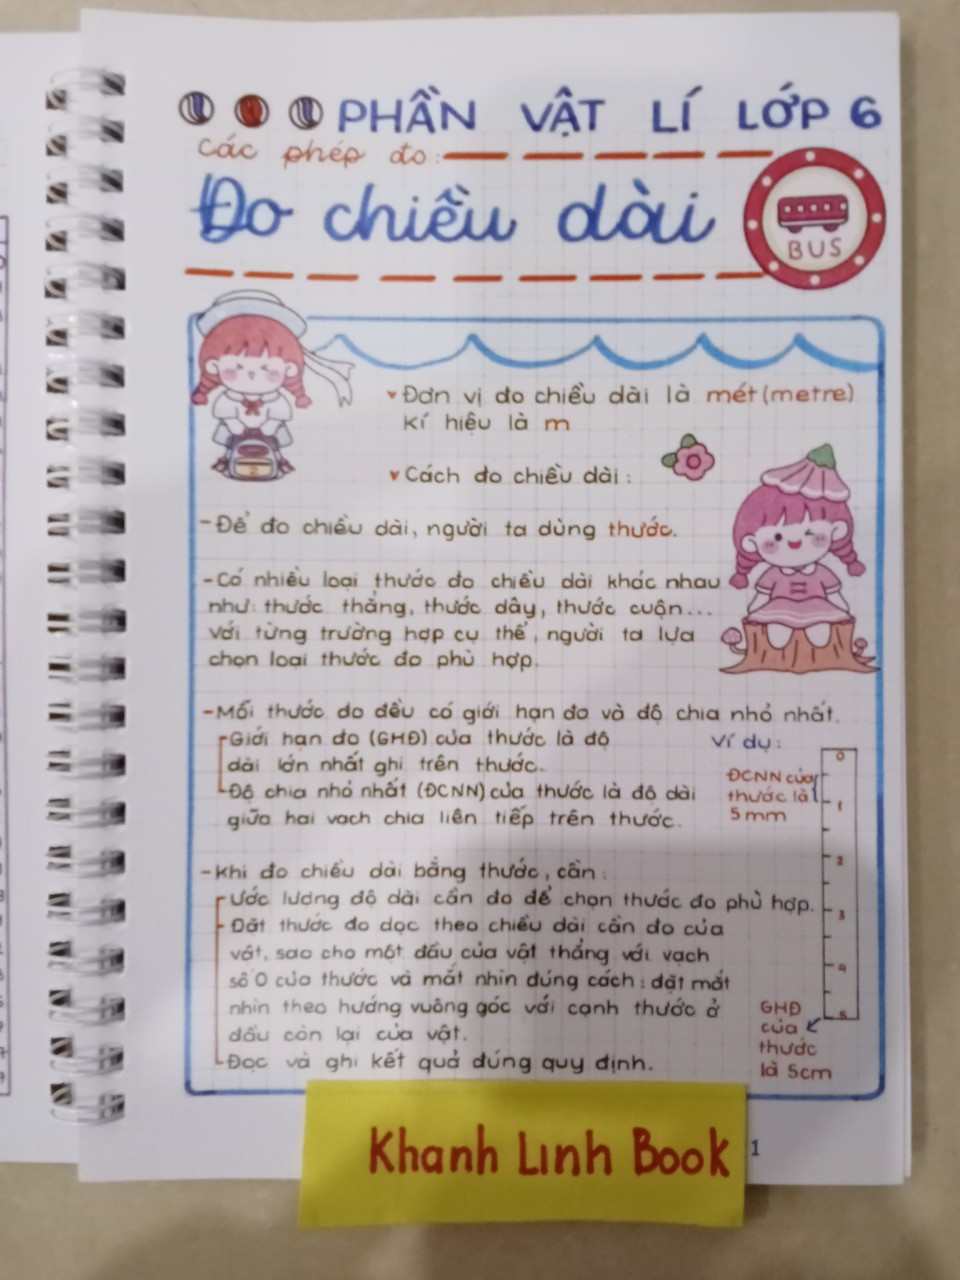 PHẦN VẬT LÍ LỚP 6
Các phép đo:
Đo chiều dài
BUS
Đơn vị đo chiều dài là mét (metre)
kí hiệu là m
Cách đo chiều dài:
- Để đo chiều dài, người ta dùng thước.
- Có nhiều loại thước đo chiều dài khác nhau
như: thước thẳng, thước dây, thước cuộn...
Với từng trường hợp cụ thể, người ta lựa
chọn loại thước đo phù hợp.
- Mỗi thước đo đều có giới hạn đo và độ chia nhỏ nhất.
Giới hạn đo (GHĐ) của thước là độ
dài lớn nhất ghi trên thước.
Độ chia nhỏ nhất (ĐCNN) của thước là độ dài
giữa hai vạch chia liên tiếp trên thước.
Ví dụ:
ĐCNN của
thước là
5 mm
0
1
2
3
4
5
GHĐ
của
thước
là 5cm
- Khi đo chiều dài bằng thước, cần:
Ước lượng độ dài cần đo để chọn thước đo phù hợp.
Đặt thước đo dọc theo chiều dài cần đo của
vật, sao cho một đầu của vật thẳng với vạch
số 0 của thước và mắt nhìn đúng cách: đặt mắt
nhìn theo hướng vuông góc với cạnh thước ở
đầu còn lại của vật.
Đọc và ghi kết quả đúng quy định.
Khanh Linh Book
1